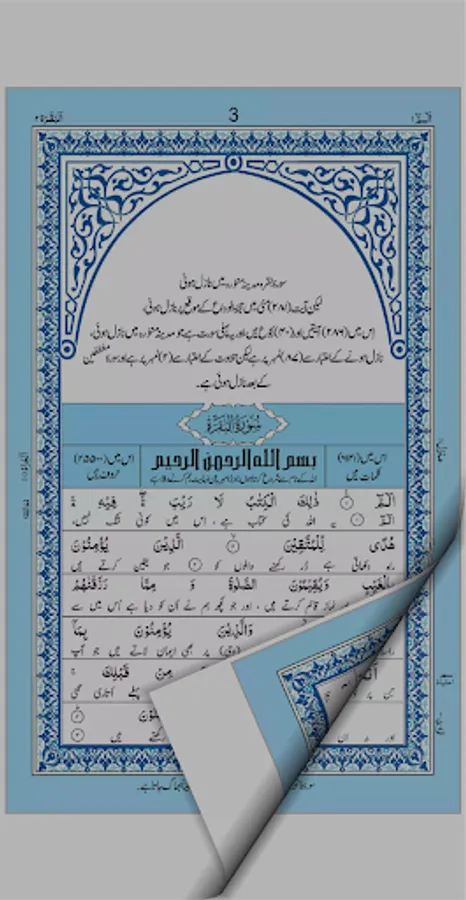 البقرة ٢ 3 الٓمّٓ ١
سورۂ بقرہ مدینہ منورہ میں نازل ہوئی
لیکن آیت (۲۸۱) منٰی میں حجۃ الوداع کے موقع پر نازل ہوئی،
اس میں (۲۸۶) آیتیں اور (۴۰) رکوع ہیں اور یہ پہلی سورت ہے جو مدینہ منورہ میں نازل ہوئی،
نازل ہونے کے اعتبار سے (۸۷) نمبر پر ہے لیکن تلاوت کے اعتبار سے (۲) نمبر پر ہے اور سورۂ مطففین
کے بعد نازل ہوئی ہے۔
سُوْرَةُ الْبَقَرَة
اس میں
کلمات ہیں
بسم الله الرحمن الرحيم
اس میں (۲۵۵۰۰)
حروف ہیں
الٓمّٓ ۚ ذٰلِكَ الْكِتٰبُ لَا رَيْبَ فِيْهِ
الٓمّٓ یہ اللہ کی کتاب ہے، اس میں کوئی شک نہیں،
هُدًى لِّلْمُتَّقِيْنَ الَّذِيْنَ يُؤْمِنُوْنَ
راہ دکھاتی ہے ڈر رکھنے والوں کو جو یقین کرتے ہیں
بِالْغَيْبِ وَيُقِيْمُوْنَ الصَّلٰوةَ وَ مِمَّا رَزَقْنٰهُمْ
اور نماز قائم کرتے ہیں، اور جو کچھ ہم نے اُن کو دیا ہے اُس میں سے
وَالَّذِيْنَ يُؤْمِنُوْنَ بِمَآ
پر بھی ایمان لاتے ہیں جو آپ
مِنْ قَبْلِكَ
پہلے اُتاری گئی